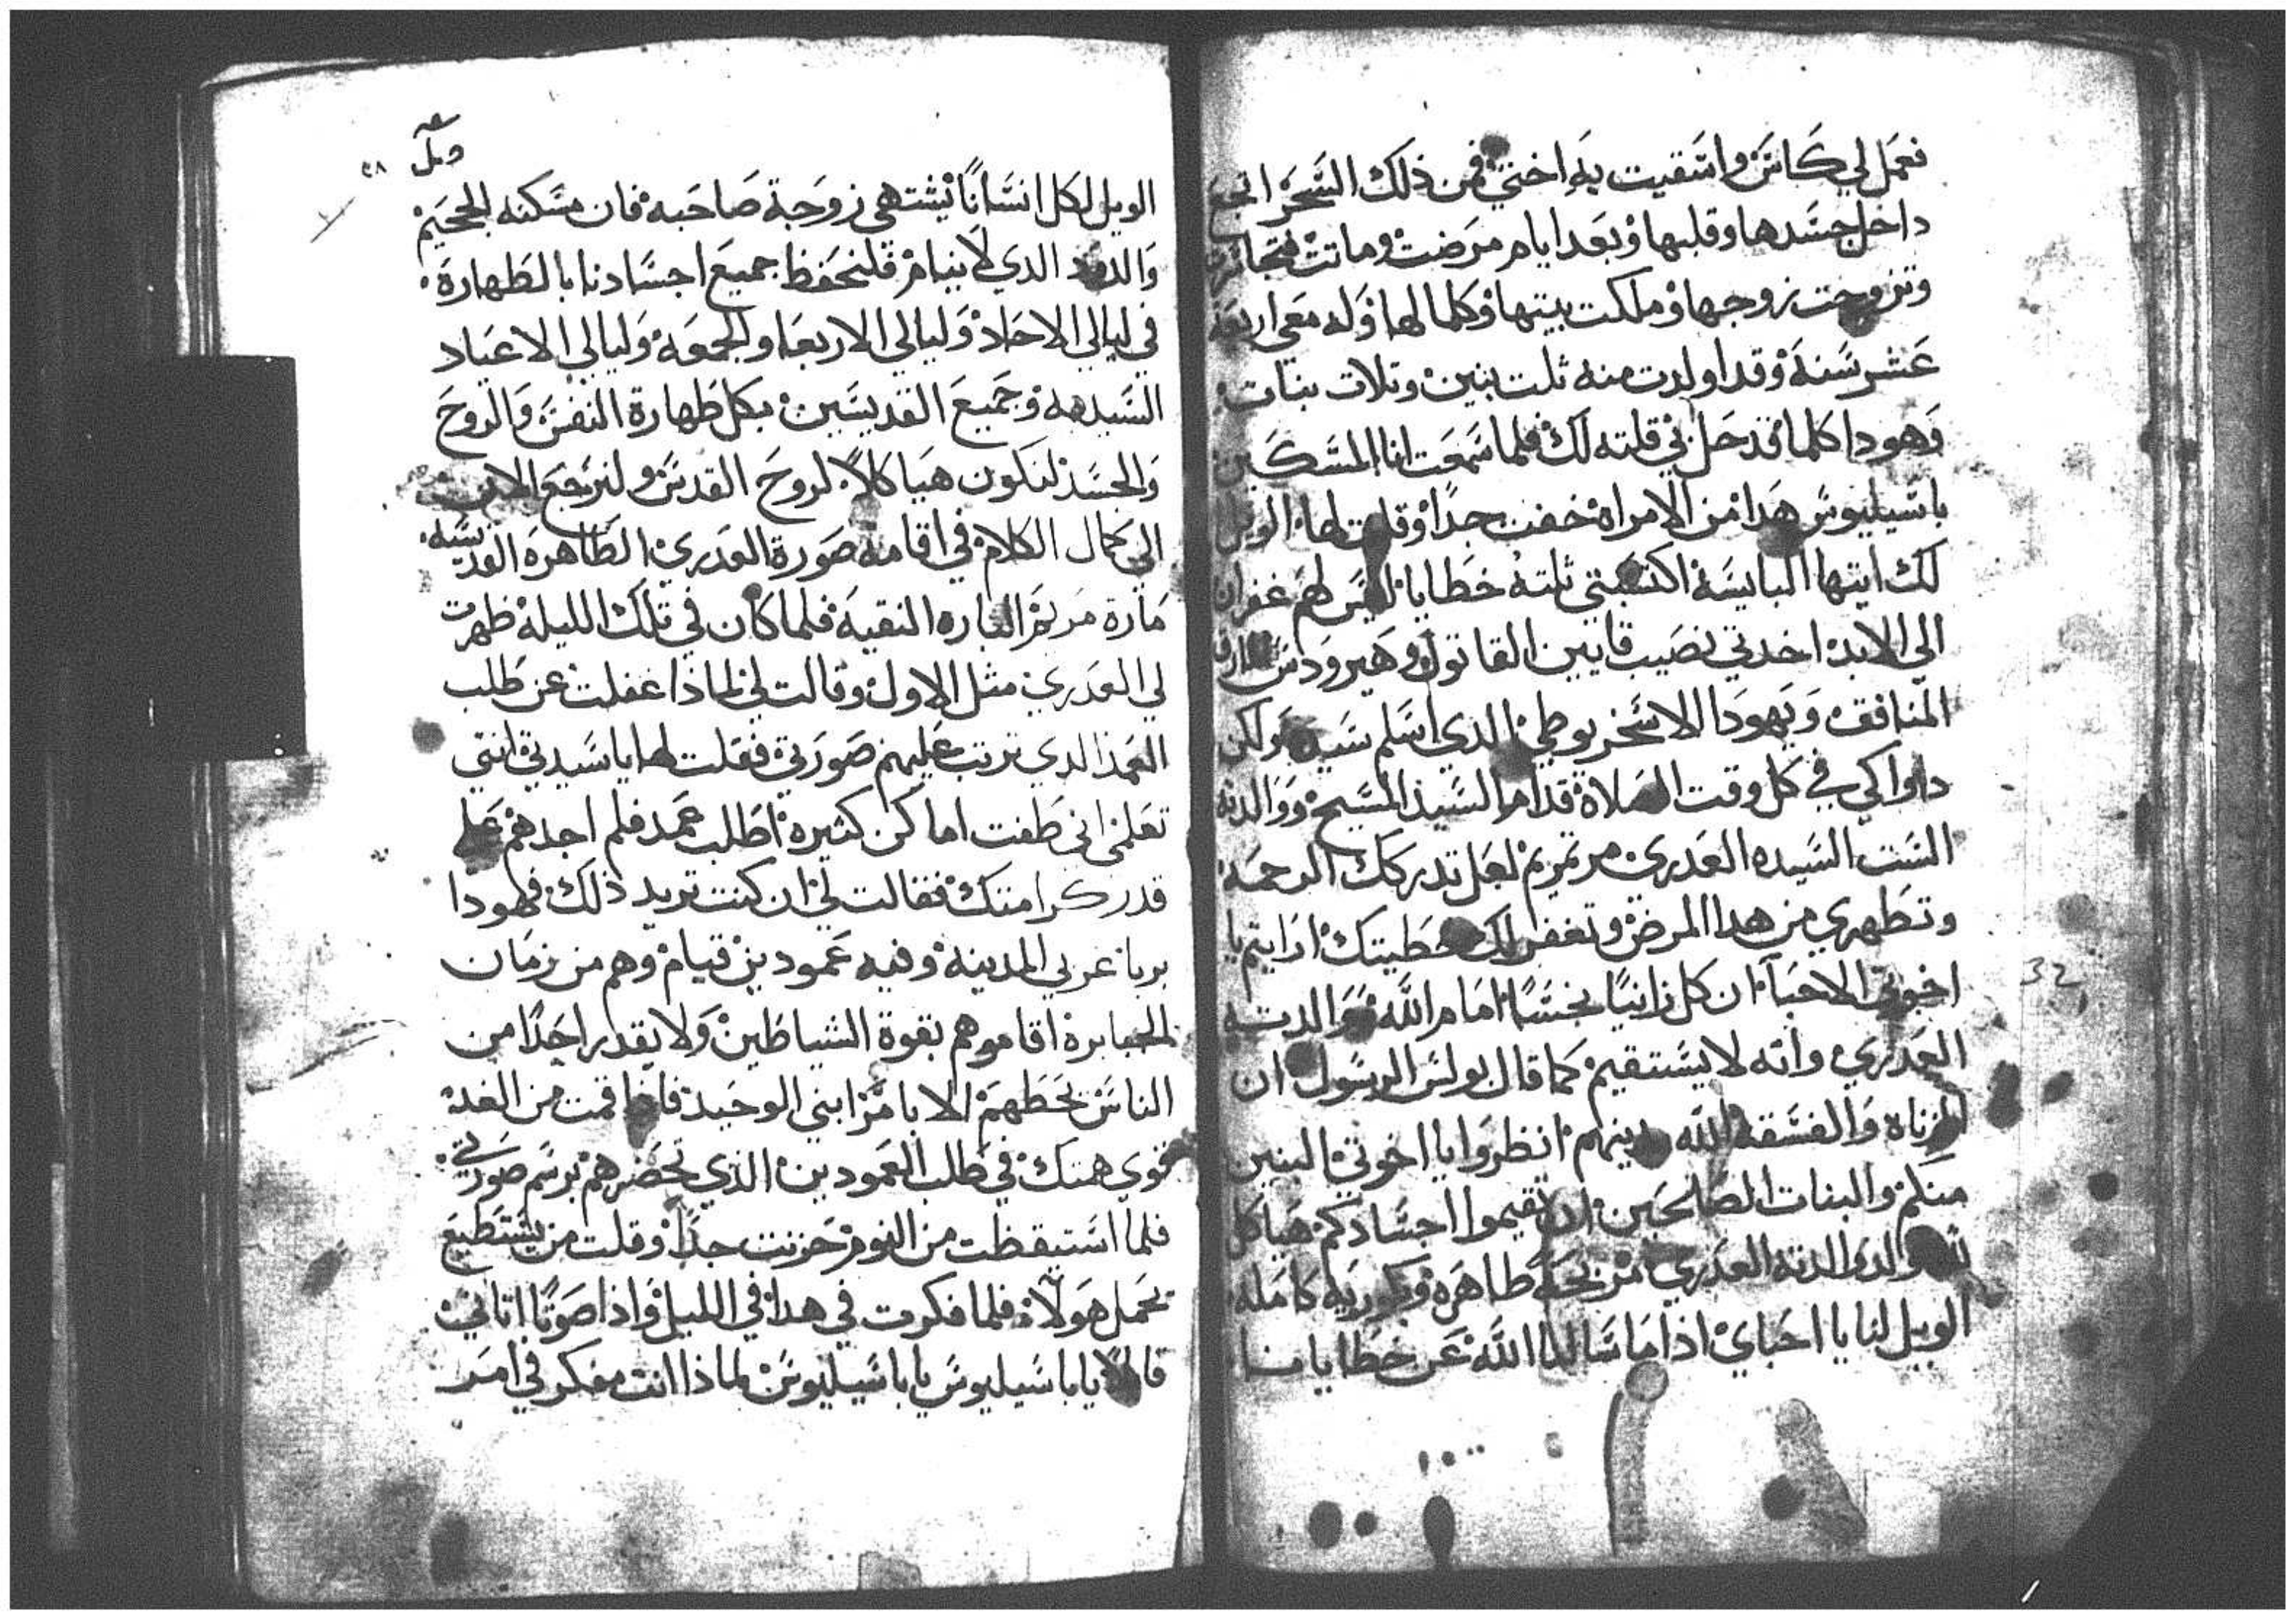 فعمل لي كاس واسقيت به اختي فمن ذلك السحر اتجع
داخل جسدها وقلبها وبعد ايام مرضت وماتت
وتزوجت زوجها وملكت بيتها وكلما لها وله معي اربعة
عشر سنة وقد اولدت منه ثلت بنين وتلات بنات
وهودا كلما قد حل بي قلته لك فلما سمعت انا المسكين
باسيليوس هدا من الامراه خفت جدا وقلت لها الويل
لك ايتها البايسة اكتسبتي ثلتة خطايا ليس لهم غفران
الي الابد اخدتي نصيب قايين القاتول وهيرودس
المنافق ويهودا الاسخريوطي الدي اسلم سيده ولكن
داواكي في كل وقت الصلاة قدام السيد المسيح ووالدته
الست السيده العدري مرتمريم لعل تدركك الرحمة
وتطهري من هدا المرض وتغفر لك خطيتك ارايتم يا
اخوتي الاحباء ان كل زانيا نجسا امام الله ووالدته
العدري وانه لا يستقيم كما قال بولس الرسول ان
الزناه والفسقة الله يدينهم انظروا يا اخوتي البنين
منكم والبنات الصالحين ان تقيموا اجسادكم هياكل
لله ولوالدته العدري مزيحة طاهرة وبكورية كامله
الويل لنا يا احباي اذا ما سالنا الله عن خطايانا
ويل
٢٨
الويل لكل انسانا يشتهي زوجة صاحبه فان مسكنه الجحيم
والدود الدي لا ينام فلنحفظ جميع اجسادنا بالطهارة
في ليالي الاحاد وليالي الاربعا والجمعة وليالي الاعياد
السيديه وجميع القديسين بكل طهارة النفس والروح
والجسد لنكون هياكلا لروح القدس ولنرجع الان
الي كمال الكلام في اقامة صورة العدري الطاهرة القديسه
مارة مريم الباره النقية فلما كان في تلك الليلة ظهرت
لي العدري مثل الاول وقالت لي لماذا غفلت عن طلب
العمد الدي ترتب عليهم صورتي فقلت لها يا سيدتي انتي
تعلمي اني طفت اماكن كثيرة اطلب عمد فلم اجدهم علي
قدر كرامتك فقالت لي ان كنت تريد ذلك فهودا
بربا غربي المدينه وفيه عمودين قيام وهم من زمان
الجبابرة اقاموهم بقوة الشياطين ولا يقدر احدا من
الناس يحطهم الا بامر ابني الوحيد فاذا قمت من الغد
قوي همتك في طلب العمودين الذي تحضرهم برسم صورتي
فلما استيقظت من النوم حزنت جدا وقلت من يستطيع
يحمل هولاء فلما فكرت في هدا في الليل واذا صوتا اتاني
قائلا يا باسيليوس يا باسيليوس لماذا انت مفكر في امر
32